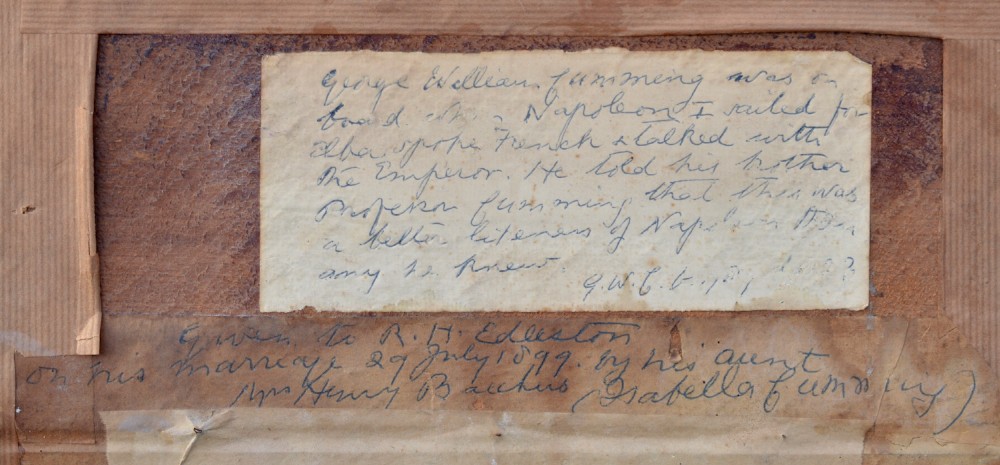 George William Cumming was on
board when Napoleon I sailed for
Elba & spoke French & talked with
the Emperor. He told his brother
Professor Cumming that this was
a better likeness of Napoleon than
any he knew.
G.W.C.
Given to R. H. Edleston
on his marriage 29 July 1899. by his aunt
Mrs Henry Backhus (Isabella Cumming)